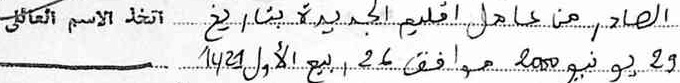 الصادر من عامل اقليم الجديدة بتاريخ اتخذ الاسم العائلي
29 يونيو 2000 موافق 26 ربيع الأول 1421